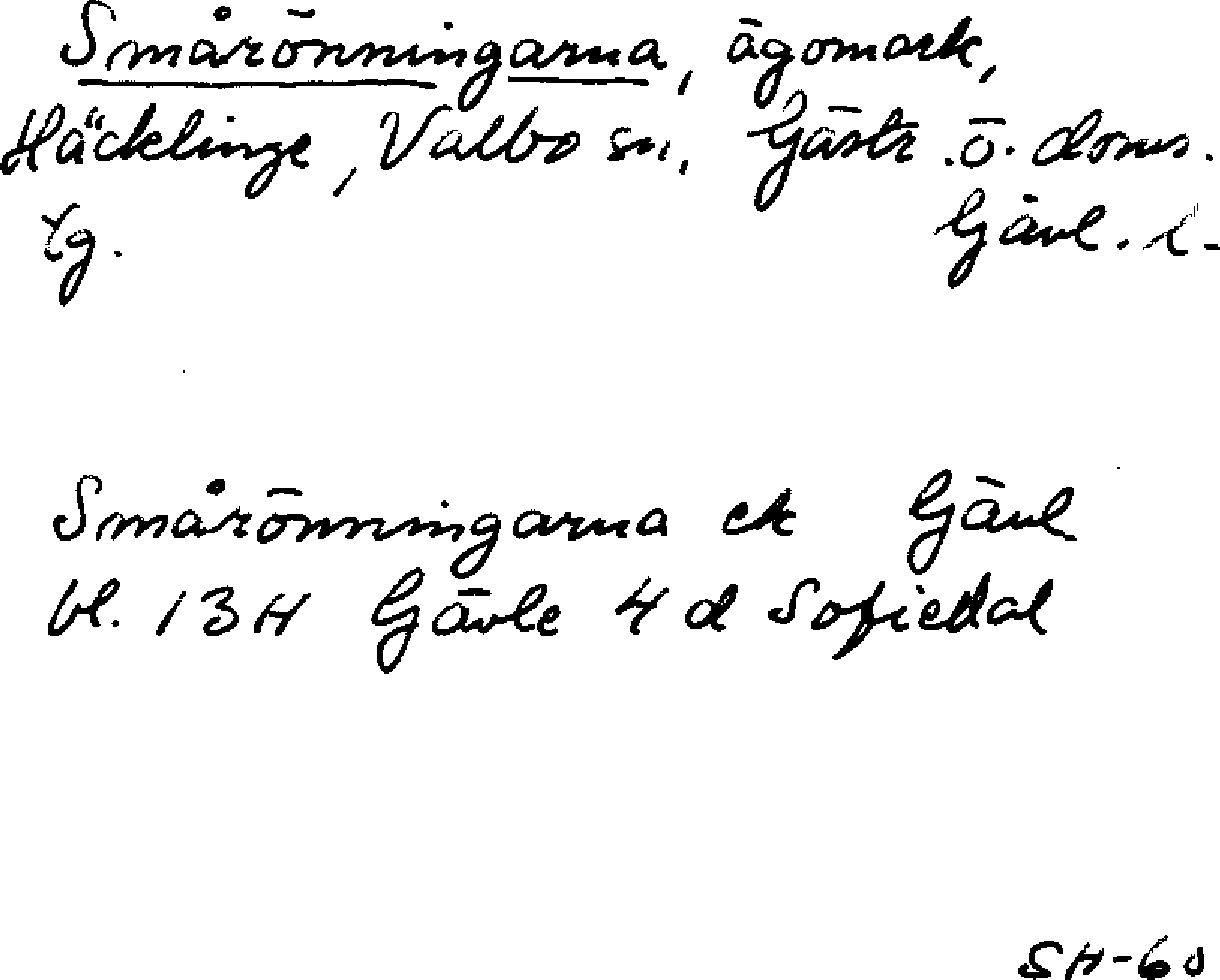 Smårönningarna, ägomark,
Häcklinge, Valbo sn, Gästr. ö. doms.
Tg. Gävl. l.
Smårönningarna ek Gävl
bl. 13H Gävle 4 d Sofiedal
SH-60